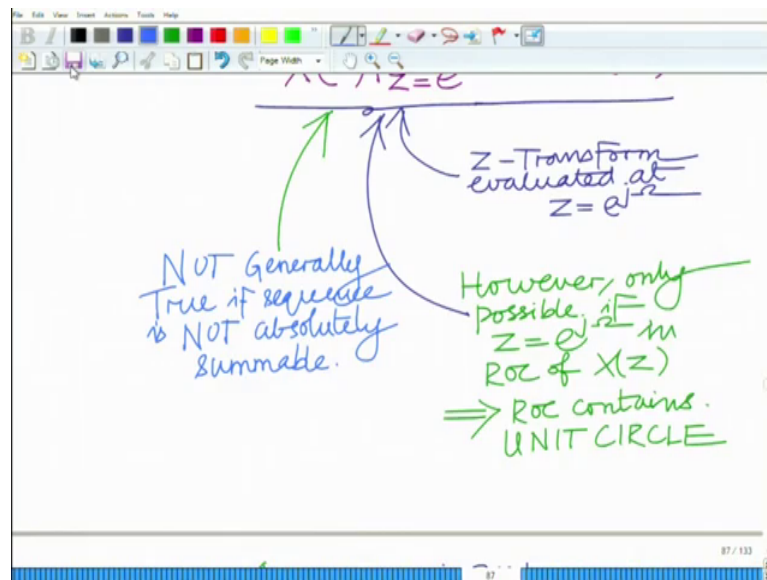 File Edit View Insert Actions Tools Help
B I
Page Width
z=e
Z-Transform
evaluated at
z = e^jΩ
NOT Generally
True if sequence
is NOT absolutely
summable.
However, only
possible if
z = e^jΩ in
ROC of X(z)
⇒ ROC contains.
UNIT CIRCLE
87 / 133
87